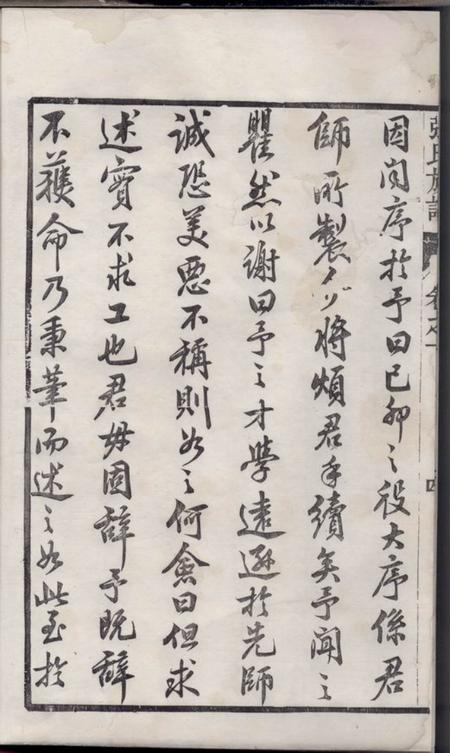 張氏族譜 卷之一 四
因問序於予曰己卯之役大序係君
師所製今必將煩君手續矣予聞之
瞿然以謝曰予之才學遠遜於先師
誠恐美惡不稱則如之何僉曰但求
述實不求工也君毋固辭予既辭
不獲命乃秉筆而述之如此至於